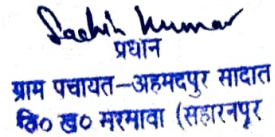 Sachin Kumar
प्रधान
ग्राम पंचायत–अहमदपुर सादात
वि० ख० सरसावा (सहारनपुर